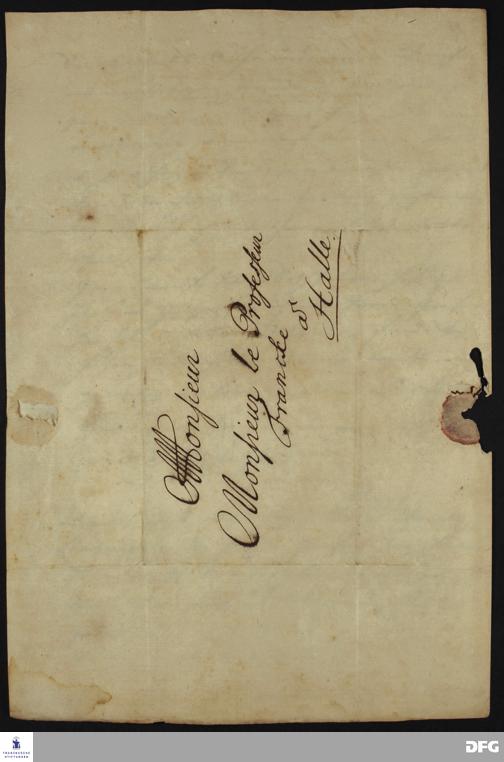 Monsieur
Monsieur le Professeur
Francke
à
Halle.
FRANCKESCHE
STIFTUNGEN
DFG